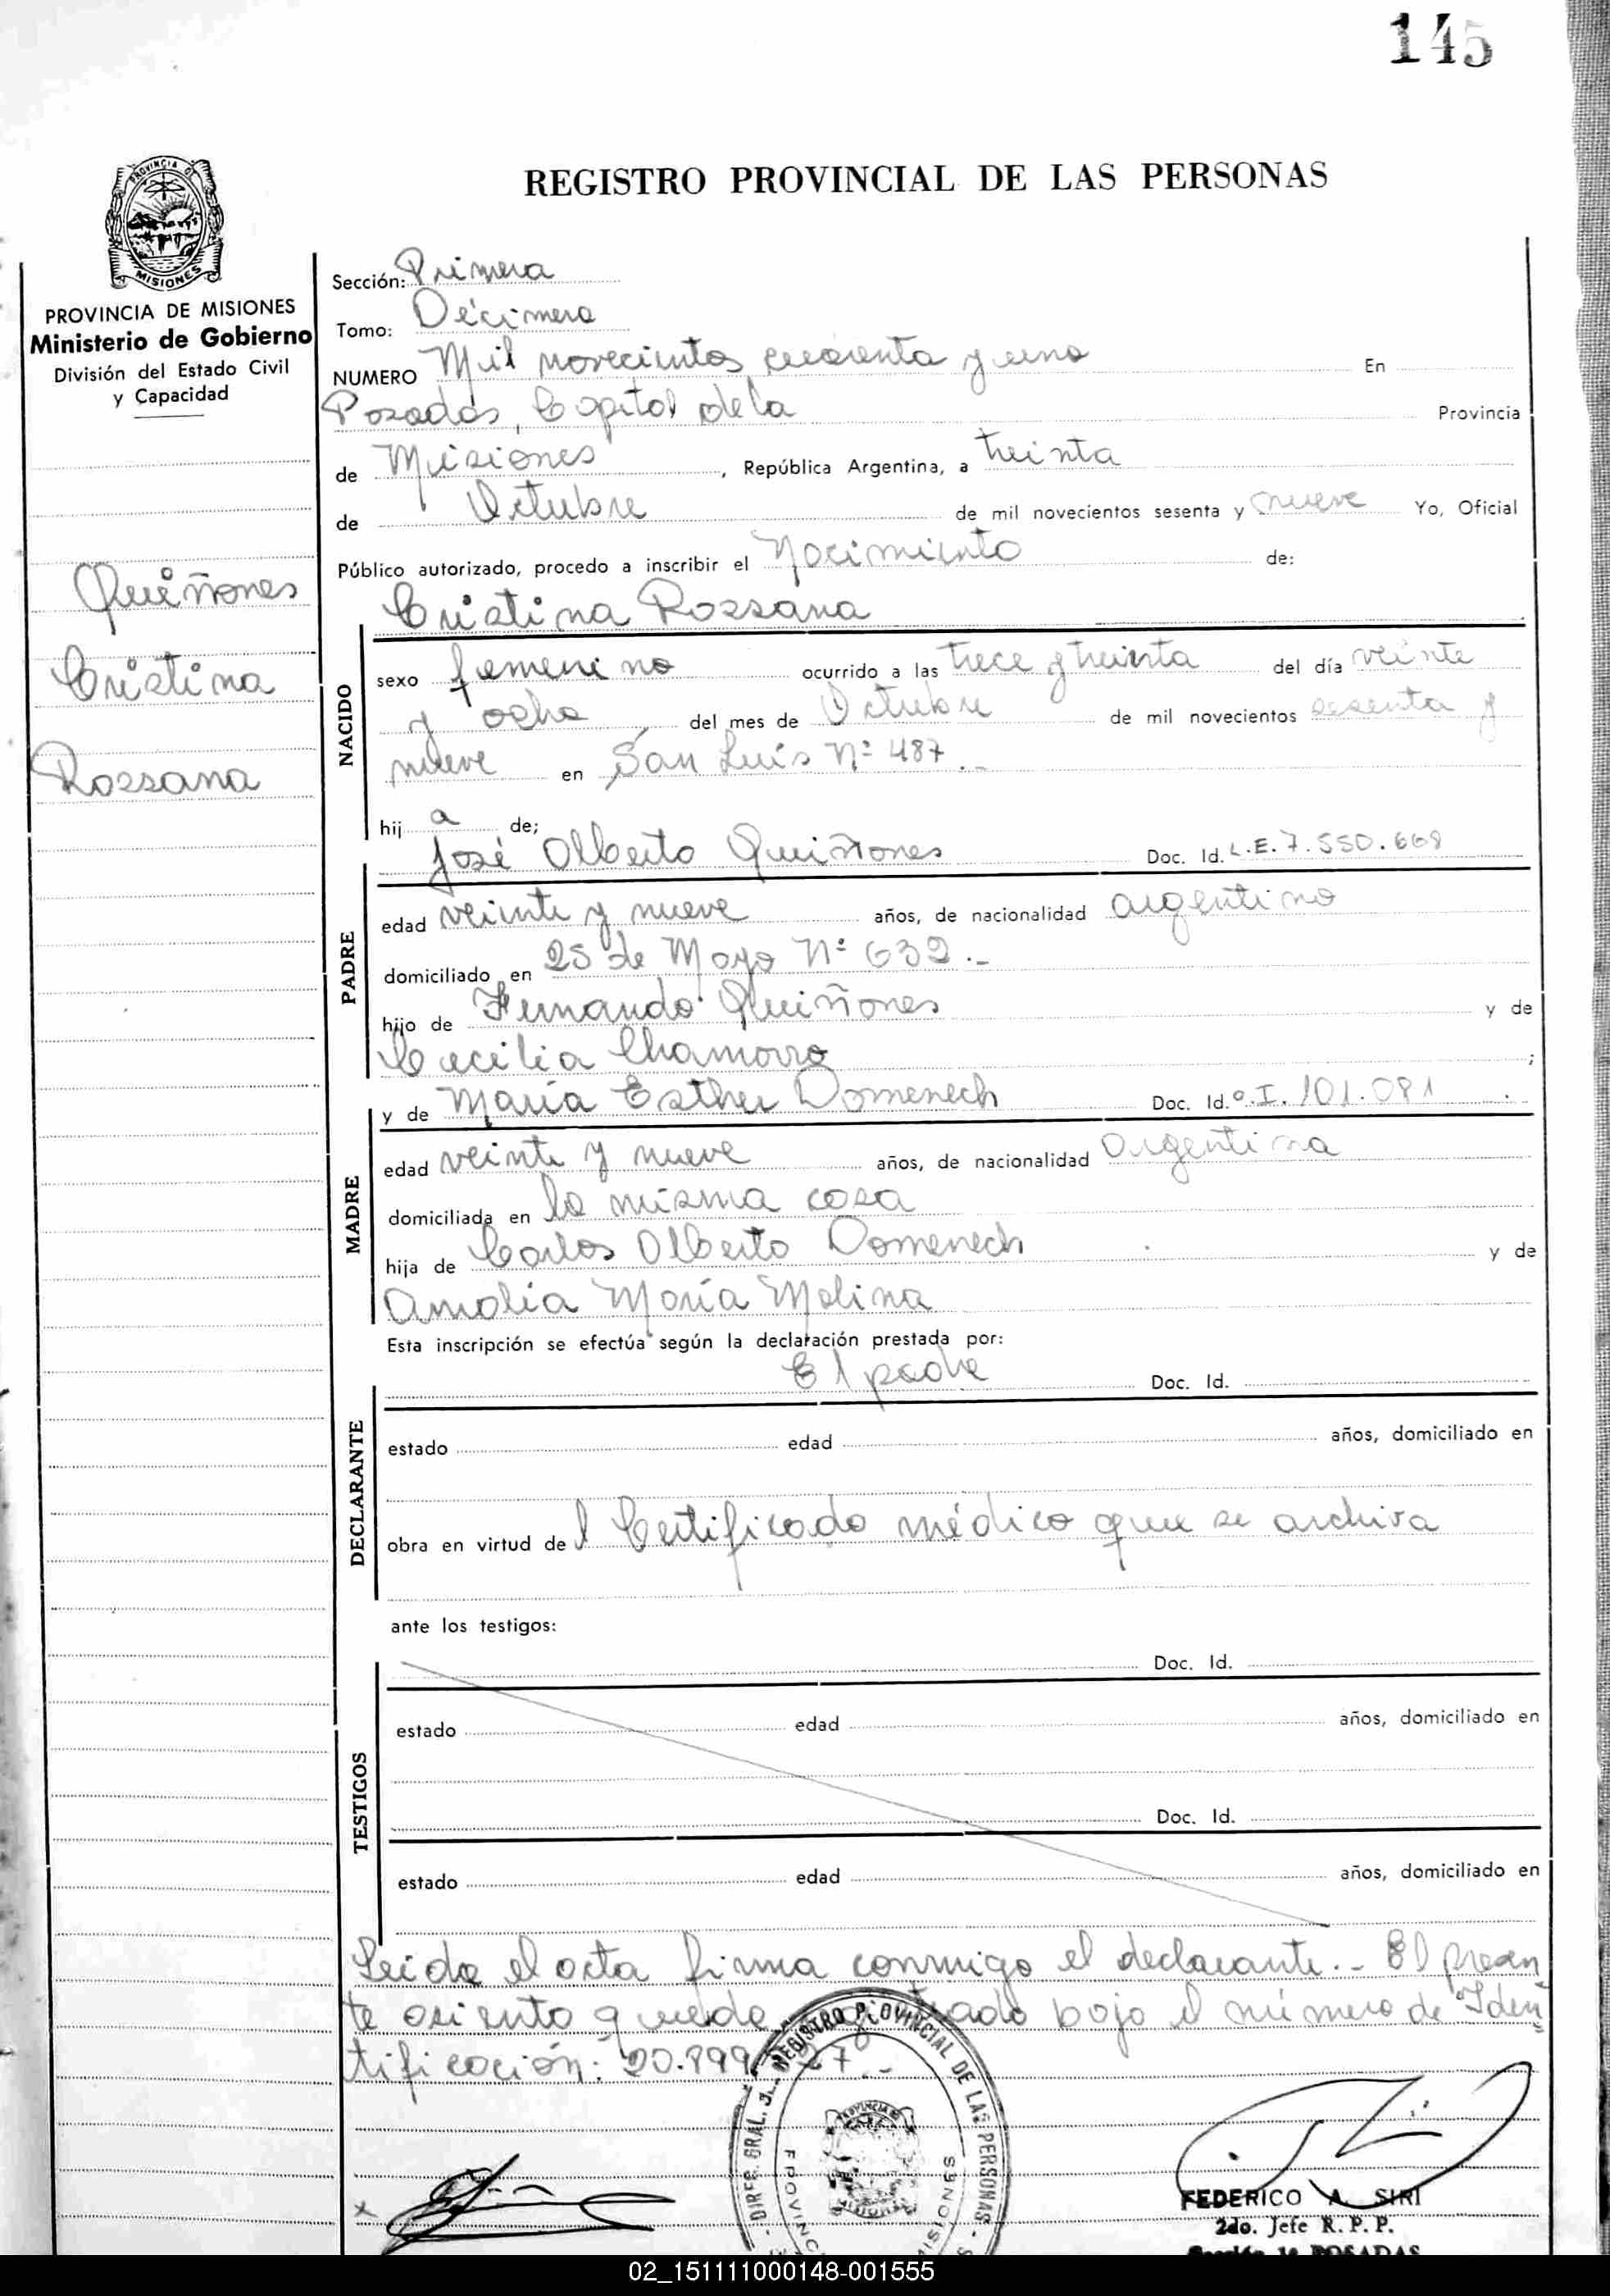 145
REGISTRO PROVINCIAL DE LAS PERSONAS
PROVINCIA DE MISIONES
Ministerio de Gobierno
División del Estado Civil
y Capacidad
Quiñones
Cristina
Rossana
Sección: Primera
Tomo: Décimero
NUMERO Mil novecientos cuarenta y uno En
Posadas, Capital de la Provincia
de Misiones, República Argentina, a treinta
de Octubre de mil novecientos sesenta y nueve Yo, Oficial
Público autorizado, procedo a inscribir el Nacimiento de:
Cristina Rossana
NACIDO
sexo femenino ocurrido a las trece y treinta del día veinte
y ocho del mes de Octubre de mil novecientos sesenta y
nueve en San Luis Nº 487.-
hij a de;
José Alberto Quiñones Doc. Id. L.E. 7.550.668
PADRE
edad veinte y nueve años, de nacionalidad argentino
domiciliado en 25 de Mayo Nº 632.-
hijo de Fernando Quiñones y de
Cecilia Chamorro ;
y de María Esther Domenech Doc. Id. C.I. 101.081
MADRE
edad veinte y nueve años, de nacionalidad Argentina
domiciliada en la misma casa
hija de Carlos Alberto Domenech y de
Amalia María Molina
Esta inscripción se efectúa según la declaración prestada por:
El padre Doc. Id.
DECLARANTE
estado edad años, domiciliado en
obra en virtud de l Certificado médico que se archiva
ante los testigos:
Doc. Id.
TESTIGOS
estado edad años, domiciliado en
Doc. Id.
estado edad años, domiciliado en
Leida el acta firma conmigo el declarante.- El presen
te asiento queda bajo el número de Iden
tificación: 20.899
REGISTRO PROVINCIAL DE LAS PERSONAS
FEDERICO A. SIRI
2do. Jefe R. P. P.
Sección 1a POSADAS
02_151111000148-001555